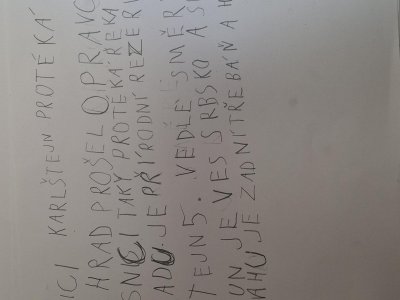 ICI KARLŠTEJN PROTÉKÁ
HRAD PROŠEL OPRAVO
SNICI TAKÝ PROTÉKÁ ŘEKA
ADU JE PŘÍRODNÍ REZERV
TEJN 5. VEDLE SMĚR
UN JE VES SRBSKO A S
AHU JE ZADNÍ TŘEBÁŇ A H